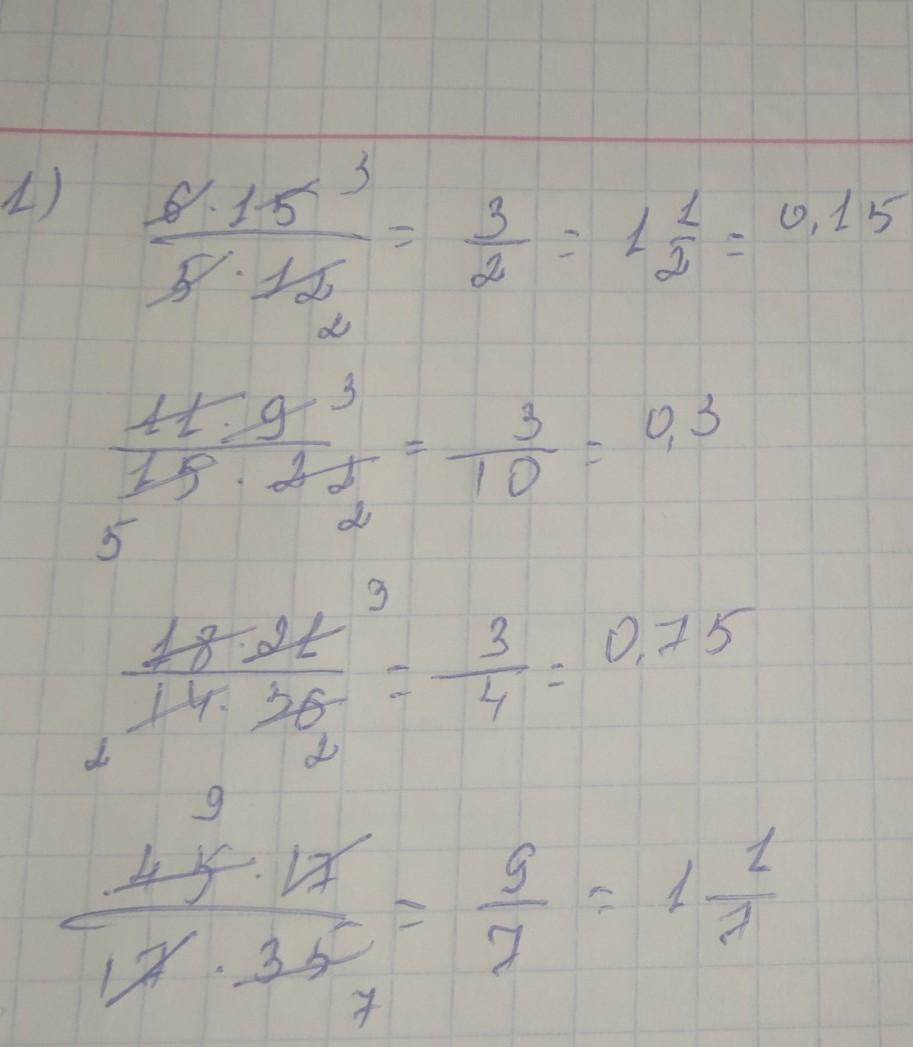 1) (6 · 15 3)/(5 · 12 2) = 3/2 = 1 1/2 = 0,15
(11 · 9 3)/(15 5 · 22 2) = 3/10 = 0,3
(18 · 21 3)/(14 2 · 36 2) = 3/4 = 0,75
(45 9 · 17)/(17 · 35 7) = 9/7 = 1 1/7